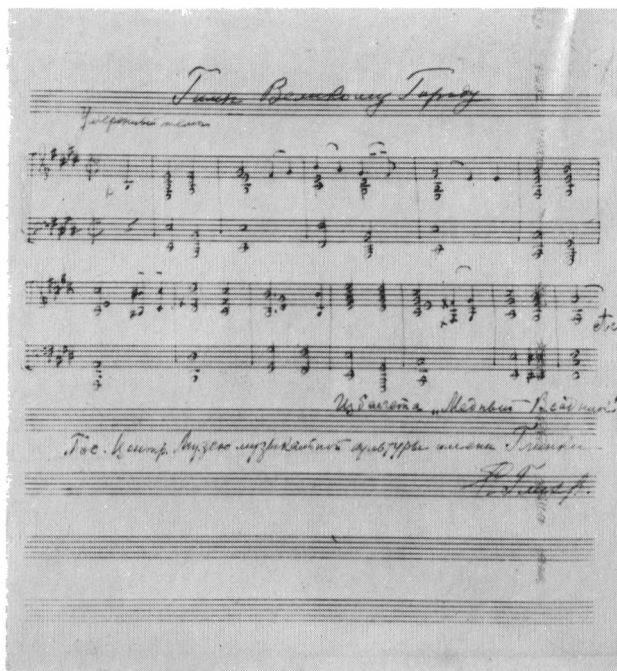 Гимн Великому Городу
etc
Из балета „Медный Всадник“
Гос. Центр. Музею музыкальной культуры имени Глинки
Р. Глиэр.